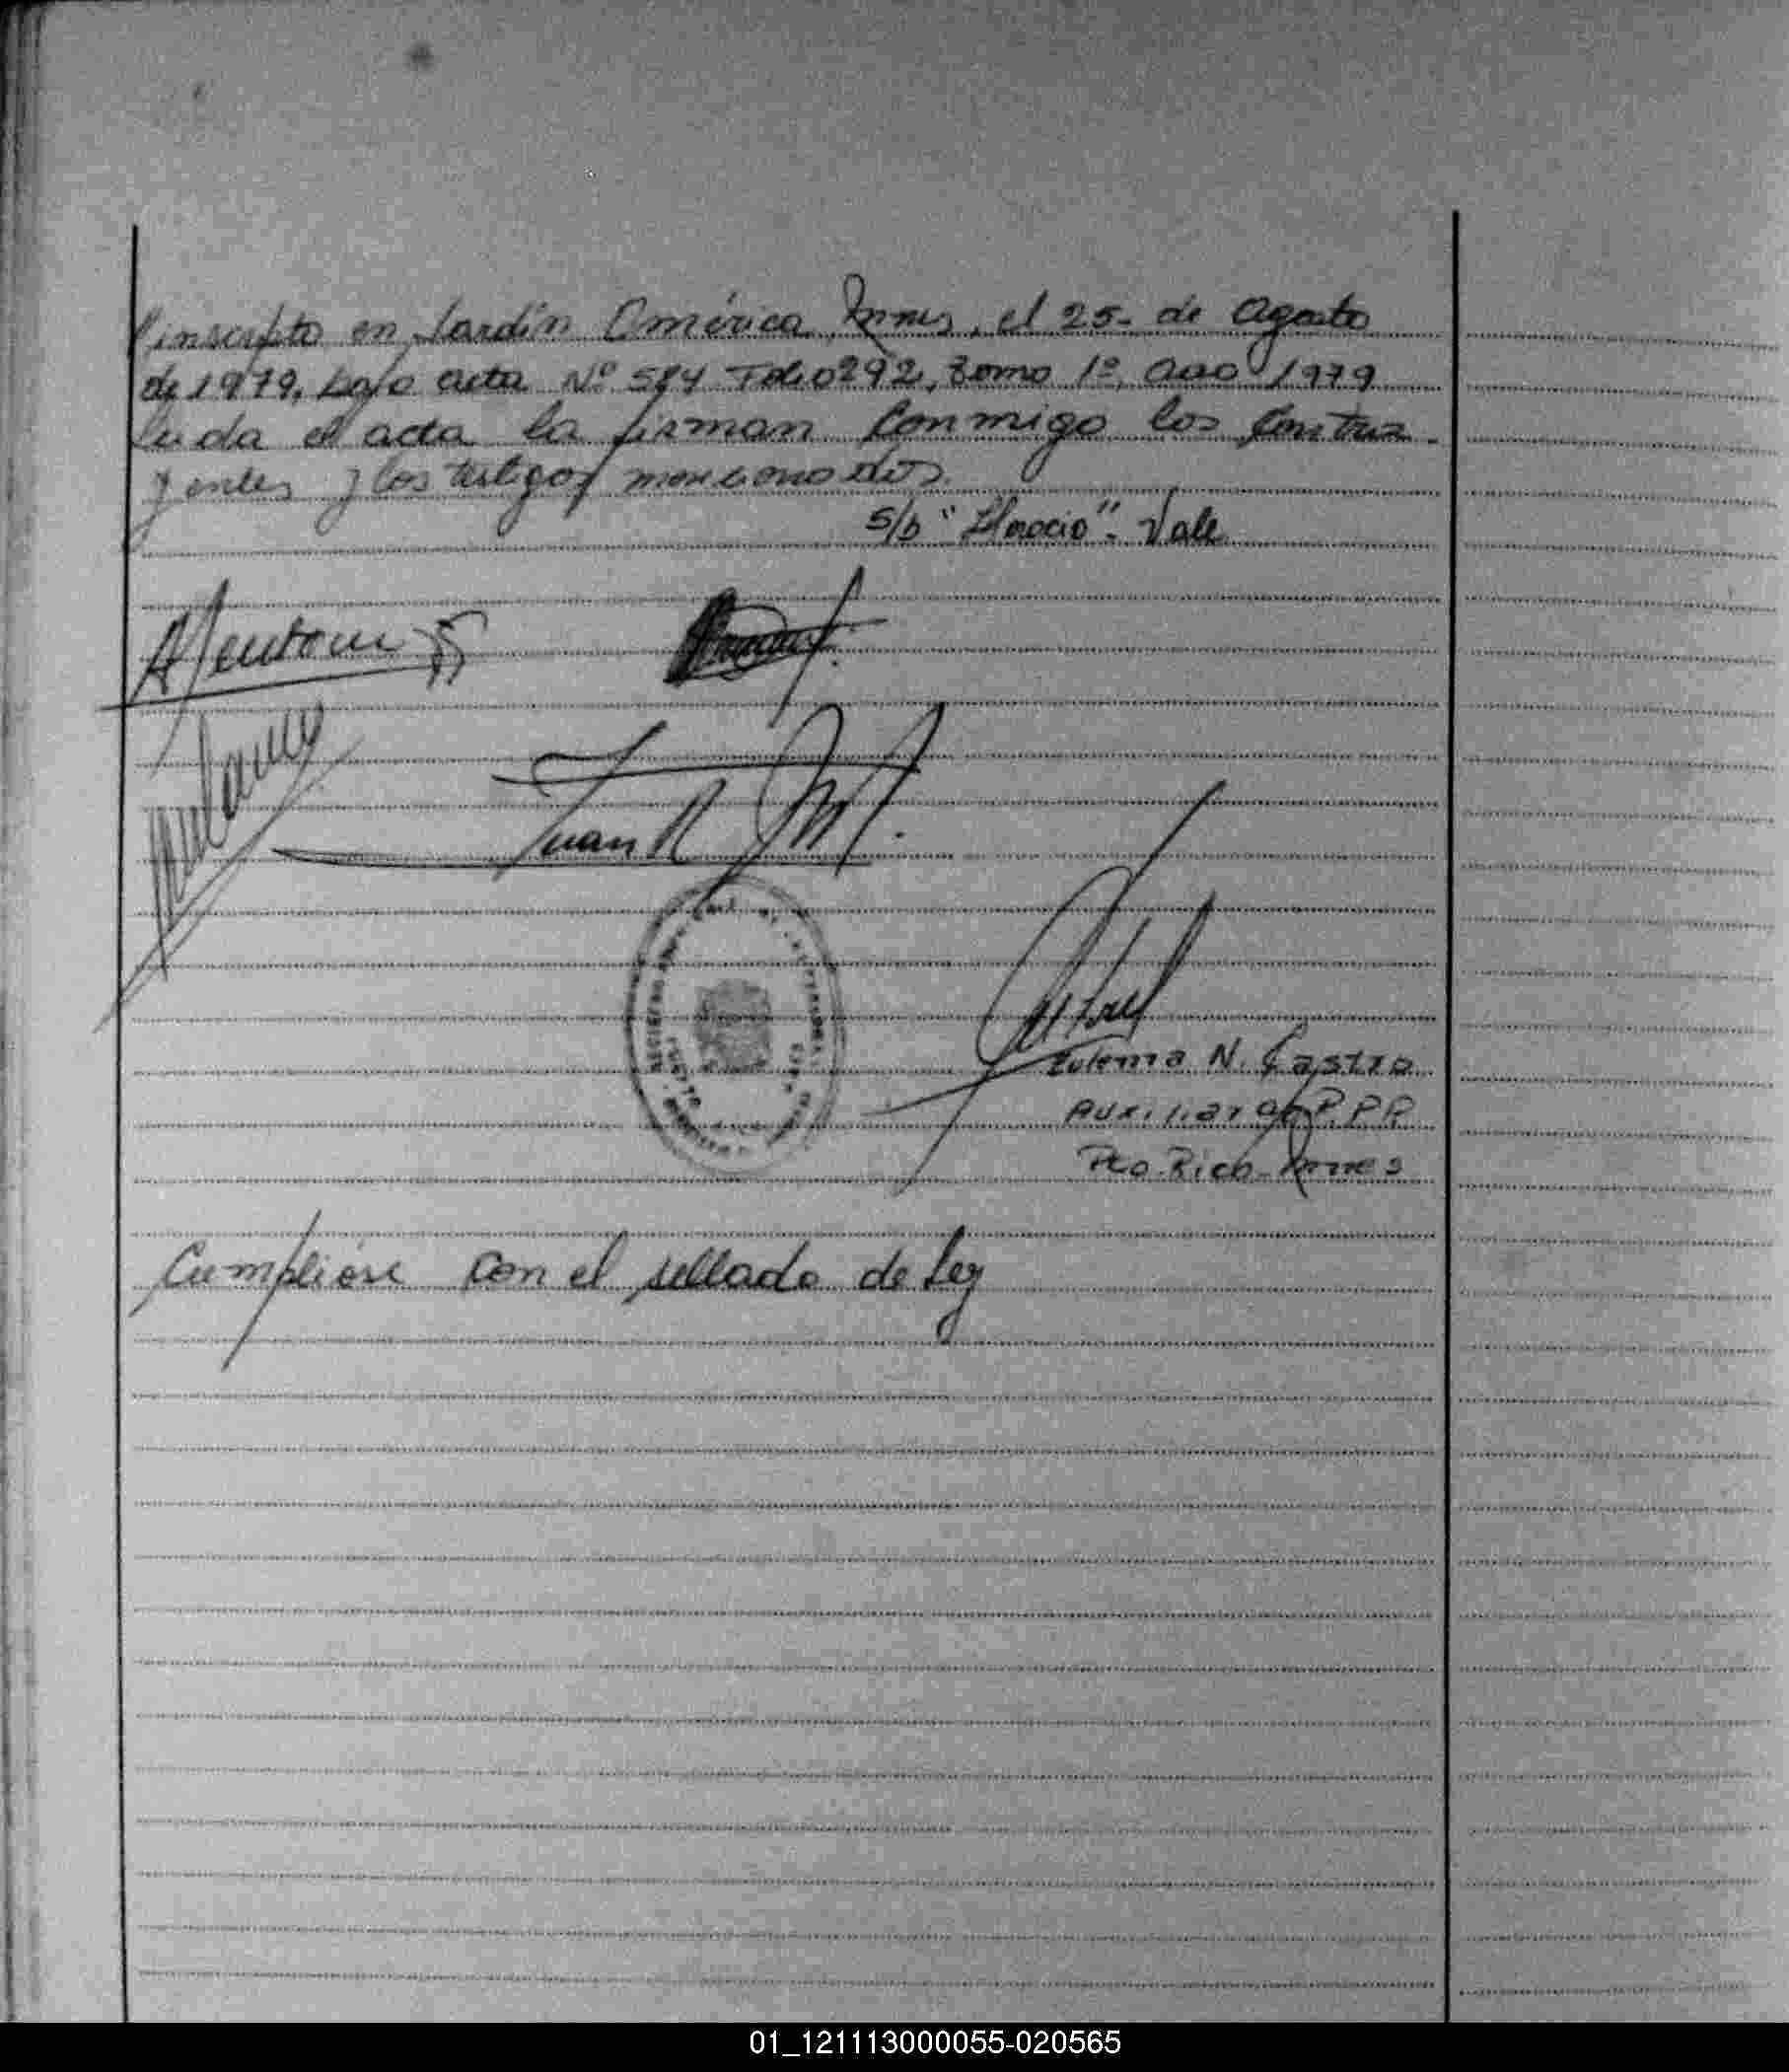 inscripto en Jardín América, Mnes, el 25- de Agosto
de 1979, bajo acta Nº 584 Folio 292, Tomo 1º, Año 1979
Leida el acta la firman Conmigo los Contra-
yentes y los testigos mencionados.
S/b "Horocio"- Vale
Juan R M.
REGISTRO
Zulema N. Castro
Auxiliar de P.P.P
Pto. Rico- Mnes
Cumpliose con el sellado de Ley
01_121113000055-020565